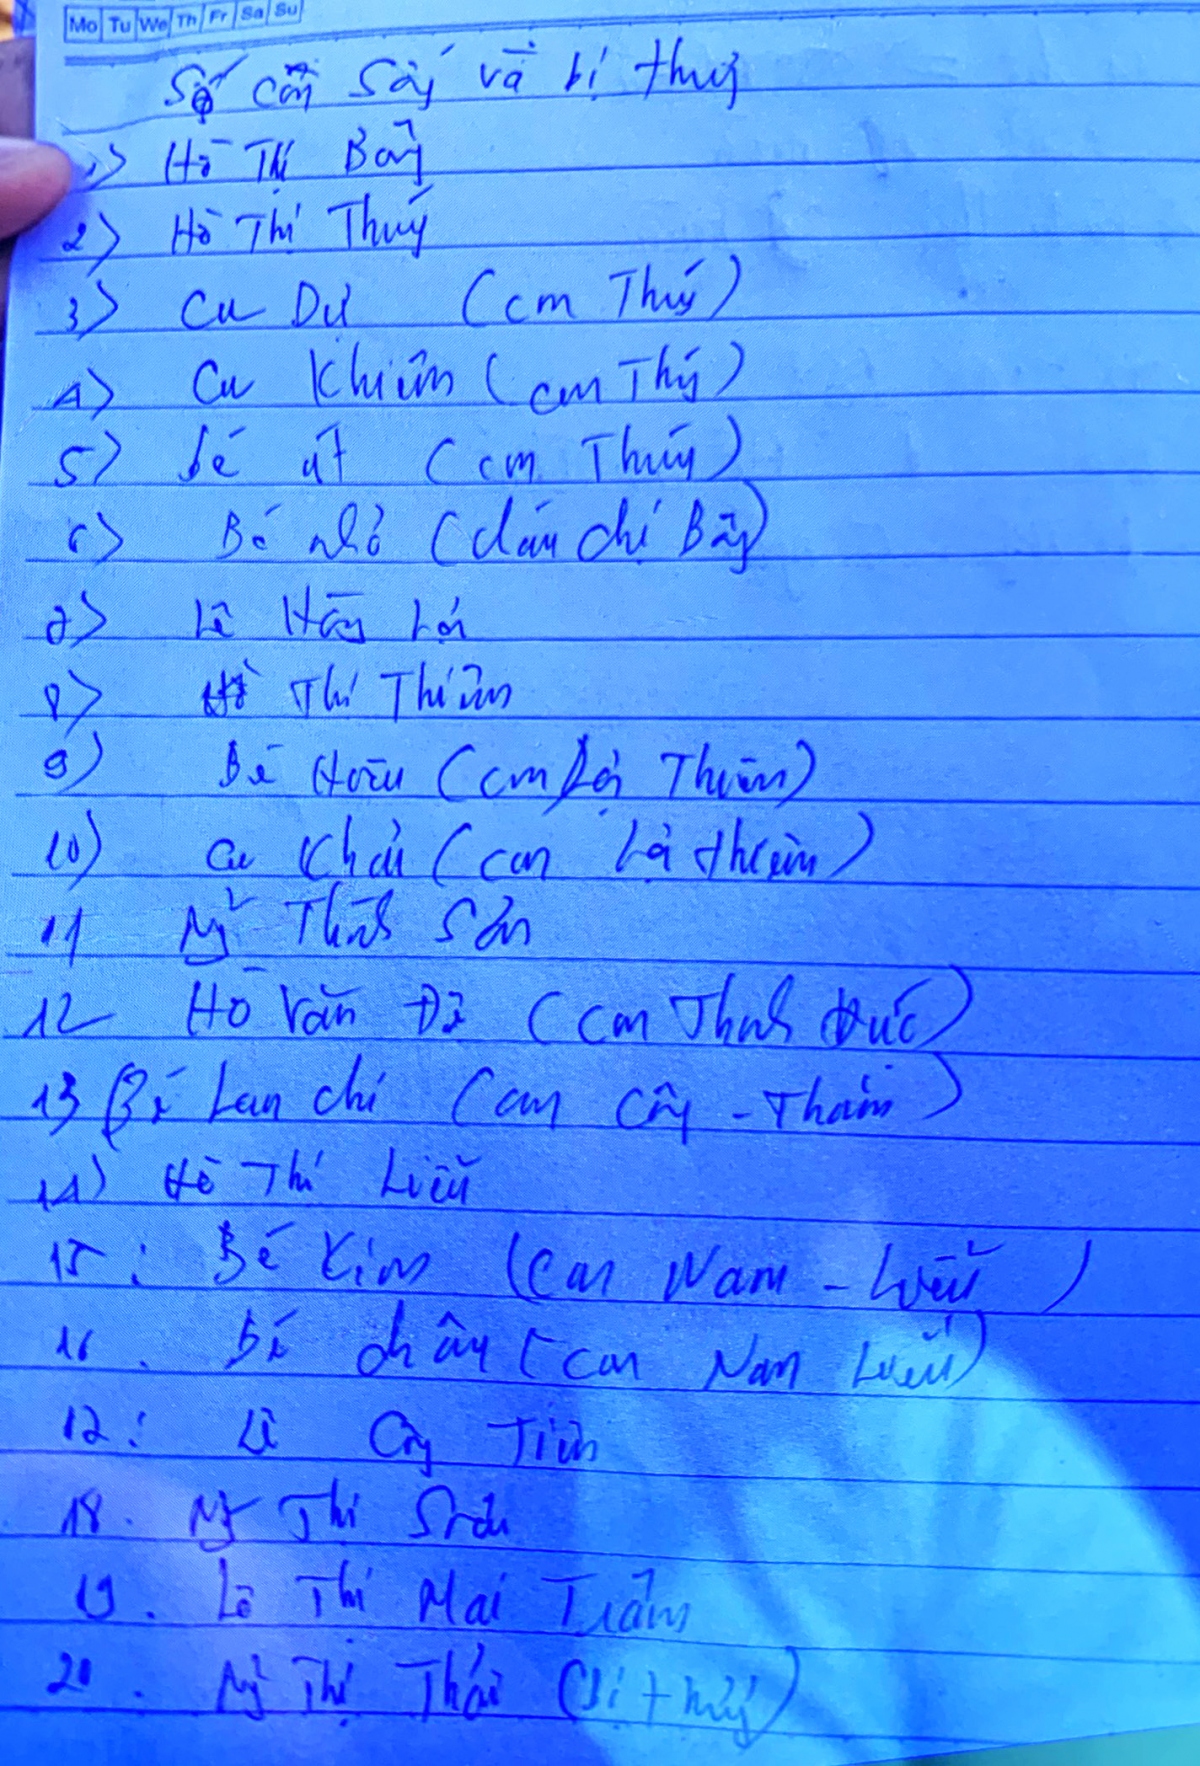 Mo Tu We Th Fr Sa Su
Số còn sống và bị thương
1) Hồ Thị Bảy
2) Hồ Thị Thuý
3) Cu Dư (con Thuý)
4) Cu Khiêm (con Thuý)
5) bé út (con Thuý)
6) Bé nhỏ (cháu chị Bảy)
7) Lê Hồng Lợi
8) Hồ Thị Thiêm
9) Bé (con Lợi Thiêm)
10) Cu Khải (con Lợi thiêm)
11 Ng~ Thành Sơn
12 Hồ Văn Đê (con Thành Đức)
13 Bé Lan chi (con Công - Thắm)
14) Hồ Thị Liễu
15: Bé Kim (con Nam - Liễu)
16. bé châu (con Nam Liễu)
17: Lê Công Tiên
18. Ng~ Thị
19. Lê Thị Mai Trâm
20. Ng~ Thị